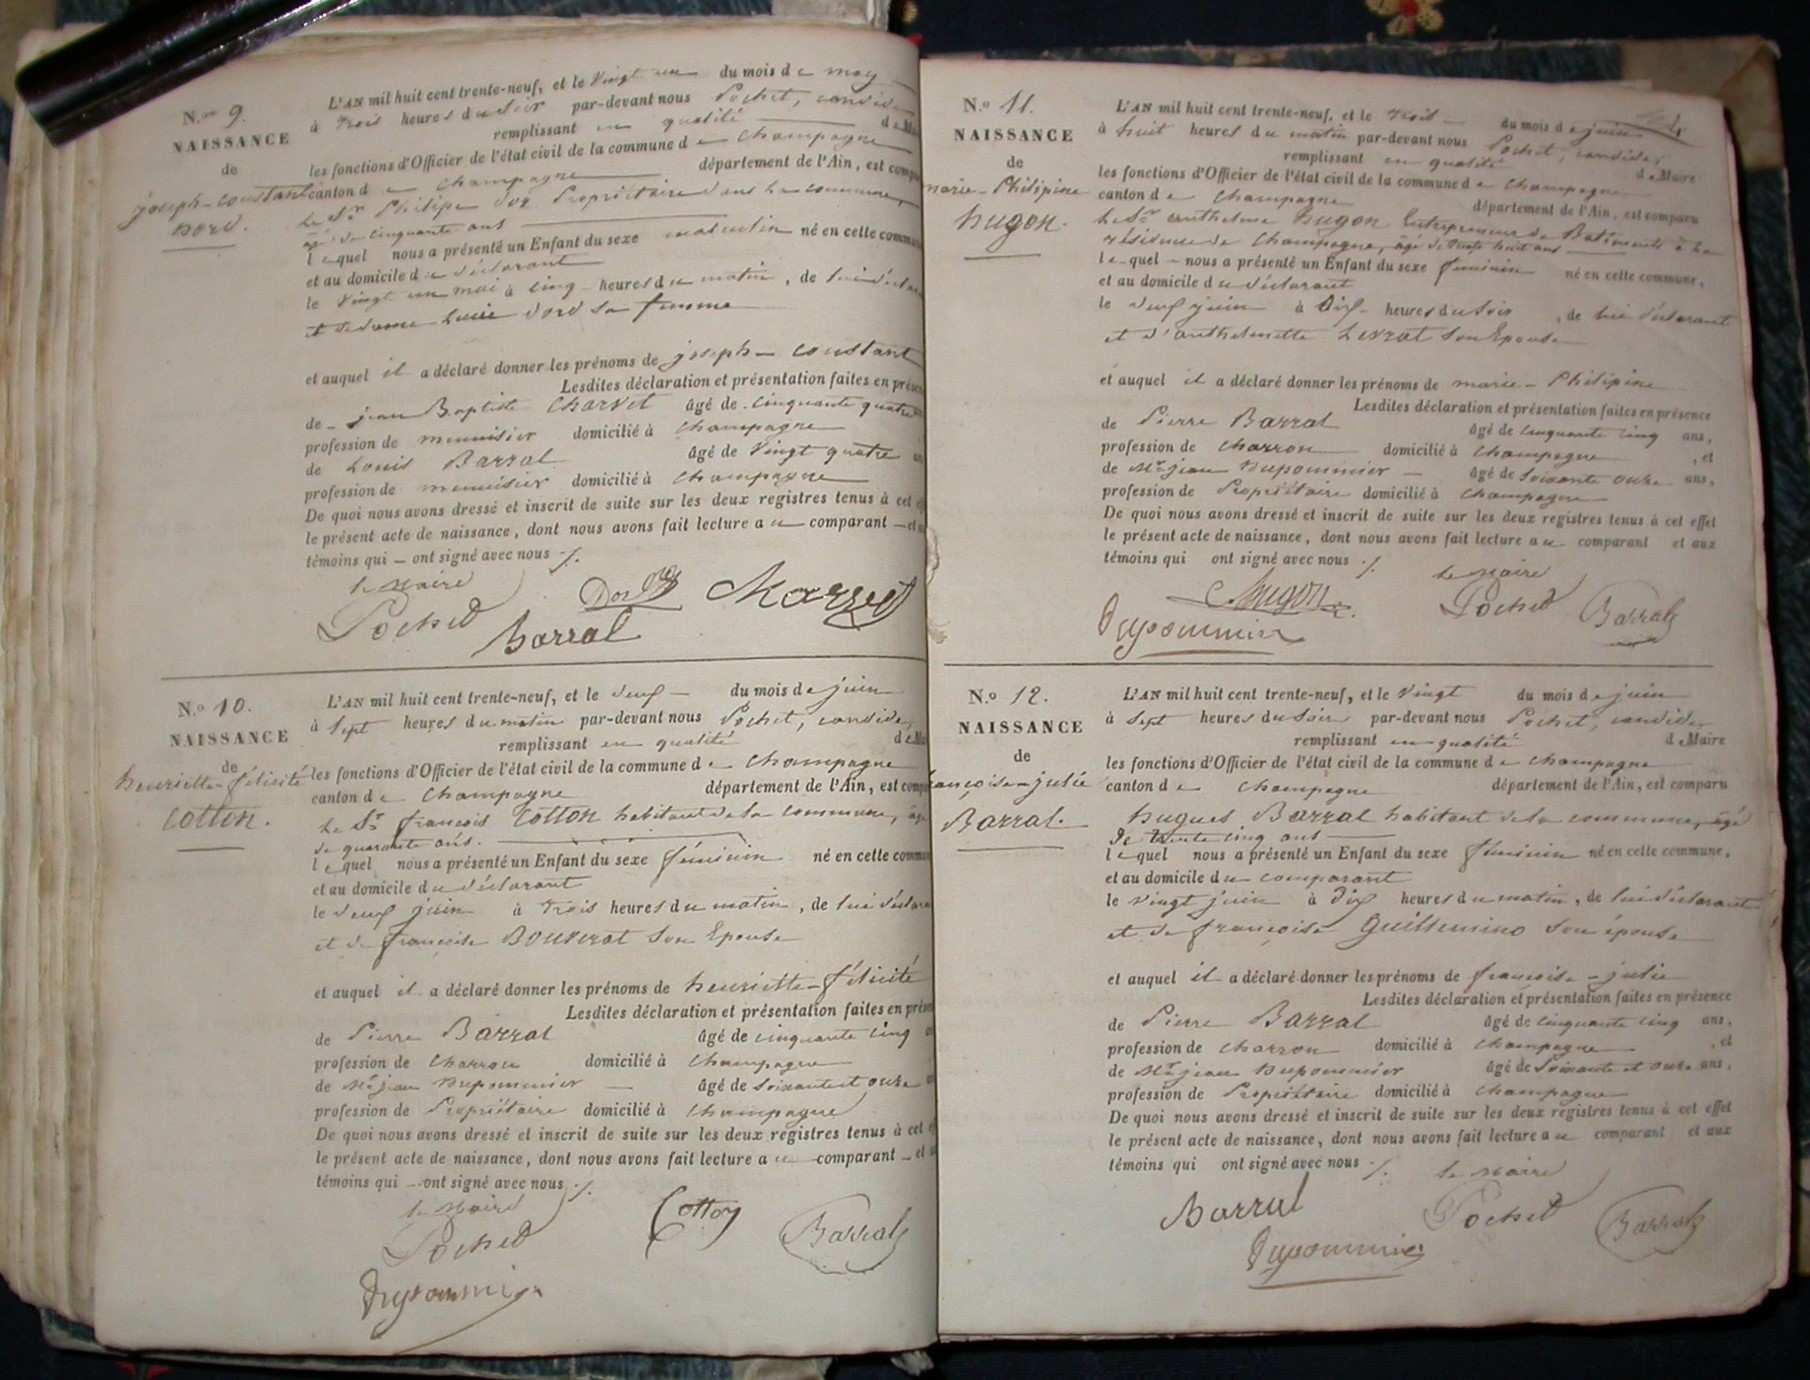 N.o 9.
NAISSANCE
de
joseph-constant
Dord.
L'AN mil huit cent trente-neuf, et le Vingt un du mois de may
à trois heures du soir par-devant nous Pochet, candide,
remplissant en qualité de Mai
les fonctions d'Officier de l'état civil de la commune de Champagne
canton de Champagne département de l'Ain, est compa
Le Sr Philipe Dord Propriétaire dans la commune,
âgé de cinquante ans
lequel nous a présenté un Enfant du sexe masculin né en cette commu
et au domicile du déclarant
le Vingt un mai à cinq heures du matin, de lui déclara
et de dame Lucie Dord sa femme
et auquel il a déclaré donner les prénoms de joseph-constant
Lesdites déclaration et présentation faites en présen
de jean Baptiste Charvet âgé de cinquante quatre
profession de menuisier domicilié à Champagne
de Louis Barral âgé de Vingt quatre an
profession de menuisier domicilié à Champagne
De quoi nous avons dressé et inscrit de suite sur les deux registres tenus à cet ef
le présent acte de naissance, dont nous avons fait lecture au comparant et a
témoins qui ont signé avec nous ./.
Le Maire
Pochet
Barral
N.o 10.
NAISSANCE
de
henriette-félicité
Cotton.
L'AN mil huit cent trente-neuf, et le deux du mois de juin
à sept heures du matin par-devant nous Pochet, candide,
remplissant en qualité de Mai
les fonctions d'Officier de l'état civil de la commune de Champagne
canton de Champagne département de l'Ain, est compa
Le Sr françois Cotton habitant de la commune, âgé
de quarante ans.
lequel nous a présenté un Enfant du sexe féminin né en cette commun
et au domicile du déclarant
le deux juin à trois heures du matin, de lui déclara
et de françoise Bouvrat son Epouse
et auquel il a déclaré donner les prénoms de henriette-félicité
Lesdites déclaration et présentation faites en présen
de Pierre Barral âgé de cinquante cinq an
profession de Charron domicilié à Champagne
de Mr jean Dupommier âgé de soixante et onze an
profession de Propriétaire domicilié à Champagne
De quoi nous avons dressé et inscrit de suite sur les deux registres tenus à cet e
le présent acte de naissance, dont nous avons fait lecture au comparant et a
témoins qui ont signé avec nous ./.
Le Maire
Pochet
Cotton
Barral
Dupommier
N.o 11.
NAISSANCE
de
marie-Philipine
hugon.
L'AN mil huit cent trente-neuf, et le trois du mois de juin
à huit heures du matin par-devant nous Pochet, candide,
remplissant en qualité de Maire
les fonctions d'Officier de l'état civil de la commune de Champagne
canton de Champagne département de l'Ain, est comparu
Le Sr anthelme hugon Entrepreneur de Batiments à la
résidence de Champagne, âgé de trente huit ans
lequel nous a présenté un Enfant du sexe féminin né en cette commune,
et au domicile du déclarant
le deux juin à dix heures du soir, de lui déclarant
et d'anthelmette Livrat son Epouse
et auquel il a déclaré donner les prénoms de marie-Philipine
Lesdites déclaration et présentation faites en présence
de Pierre Barral âgé de cinquante cinq ans,
profession de Charron domicilié à Champagne, et
de Mr jean Dupommier âgé de soixante onze ans,
profession de Propriétaire domicilié à Champagne
De quoi nous avons dressé et inscrit de suite sur les deux registres tenus à cet effet
le présent acte de naissance, dont nous avons fait lecture au comparant et aux
témoins qui ont signé avec nous ./.
Le Maire
hugon
Pochet
Barral
Dupommier
N.o 12.
NAISSANCE
de
françoise-julie
Barral.
L'AN mil huit cent trente-neuf, et le Vingt du mois de juin
à sept heures du soir par-devant nous Pochet, candide,
remplissant en qualité de Maire
les fonctions d'Officier de l'état civil de la commune de Champagne
canton de Champagne département de l'Ain, est comparu
hugues Barral habitant de la commune, âgé
de trente cinq ans
lequel nous a présenté un Enfant du sexe féminin né en cette commune,
et au domicile du comparant
le vingt juin à dix heures du matin, de lui déclarant
et de françoise Guillemino son épouse
et auquel il a déclaré donner les prénoms de françoise-julie
Lesdites déclaration et présentation faites en présence
de Pierre Barral âgé de cinquante cinq ans,
profession de Charron domicilié à Champagne, et
de Mr jean Dupommier âgé de soixante et onze ans,
profession de Propriétaire domicilié à Champagne
De quoi nous avons dressé et inscrit de suite sur les deux registres tenus à cet effet
le présent acte de naissance, dont nous avons fait lecture au comparant et aux
témoins qui ont signé avec nous ./.
Le Maire
Barral
Pochet
Barral
Dupommier